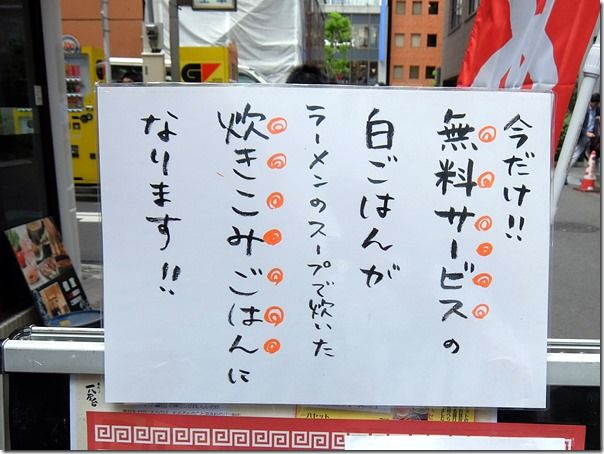 今だけ!!
無料サービスの
白ごはんが
ラーメンのスープで炊いた
炊きこみごはんに
なります!!